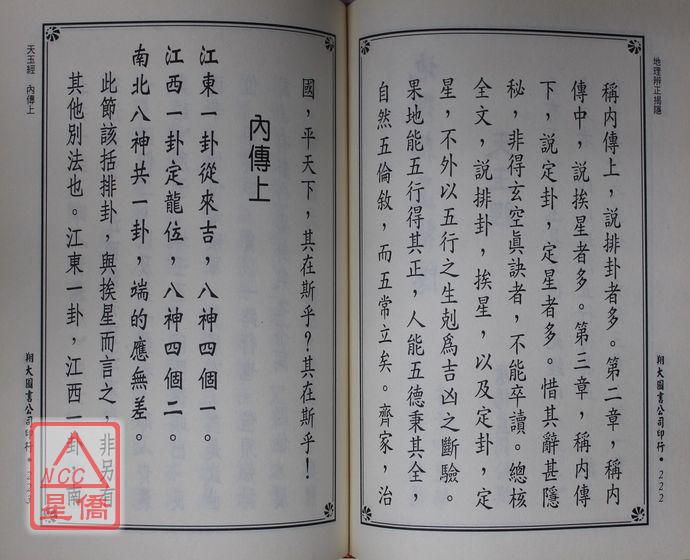 地理辨正揭隱
稱內傳上，說排卦者多。第二章，稱內
傳中，說挨星者多。第三章，稱內傳
下，說定卦，定星者多。惜其辭甚隱
秘，非得玄空眞訣者，不能卒讀。總核
全文，說排卦，挨星，以及定卦，定
星，不外以五行之生剋為吉凶之斷驗。
果地能五行得其正，人能五德秉其全，
自然五倫敘，而五常立矣。齊家，治
翔大圖書公司印行•222
天玉經 內傳上
國，平天下，其在斯乎？其在斯乎！
內傳上
江東一卦從來吉，八神四個一。
江西一卦定龍位，八神四個二。
南北八神共一卦，端的應無差。
此節該括排卦，與挨星而言之，非另有
其他別法也。江東一卦，江西一卦，南
翔大圖書公司印行•223
NCC
星僑